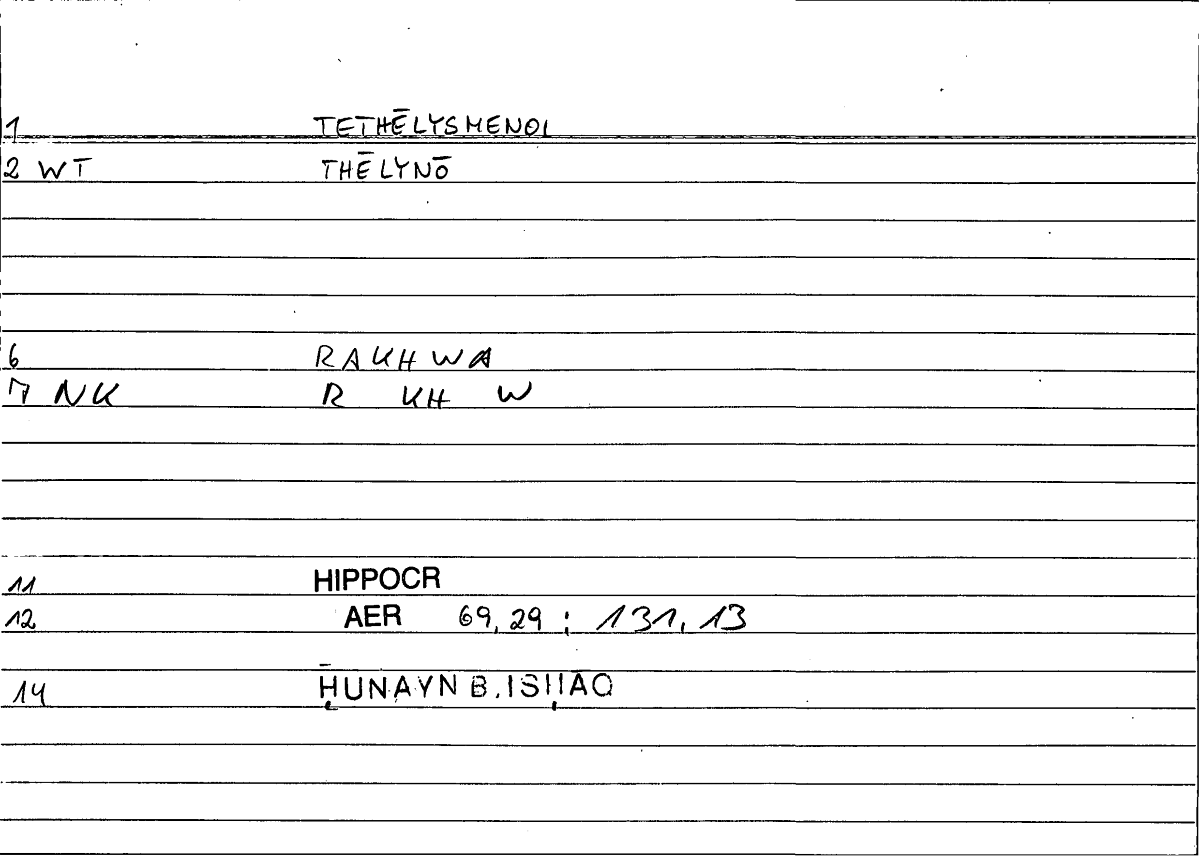 1 TETHĒLYSMENOI
2 WT THĒLYNŌ
6 RAKHWA
7 NK R KH W
11 HIPPOCR
12 AER 69,29 ; 131,13
14 ḤUNAYN B. ISḤĀQ